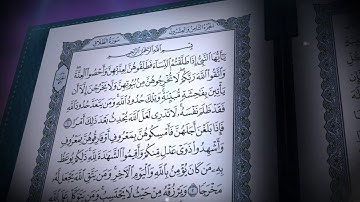 الجزء الثامن والعشرون
سورة الطلاق
بسم الله الرحمن الرحيم
يا أيها النبي إذا طلقتم النساء فطلقوهن لعدتهن وأحصوا العدة
واتقوا الله ربكم لا تخرجوهن من بيوتهن ولا يخرجن إلا أن
يأتين بفاحشة مبينة وتلك حدود الله ومن يتعد حدود الله
فقد ظلم نفسه لا تدري لعل الله يحدث بعد ذلك أمرا ١
فإذا بلغن أجلهن فأمسكوهن بمعروف أو فارقوهن بمعروف
وأشهدوا ذوي عدل منكم وأقيموا الشهادة لله ذلكم يوعظ
به من كان يؤمن بالله واليوم الآخر ومن يتق الله يجعل له
مخرجا ٢ ويرزقه من حيث لا يحتسب ومن يتوكل على الله